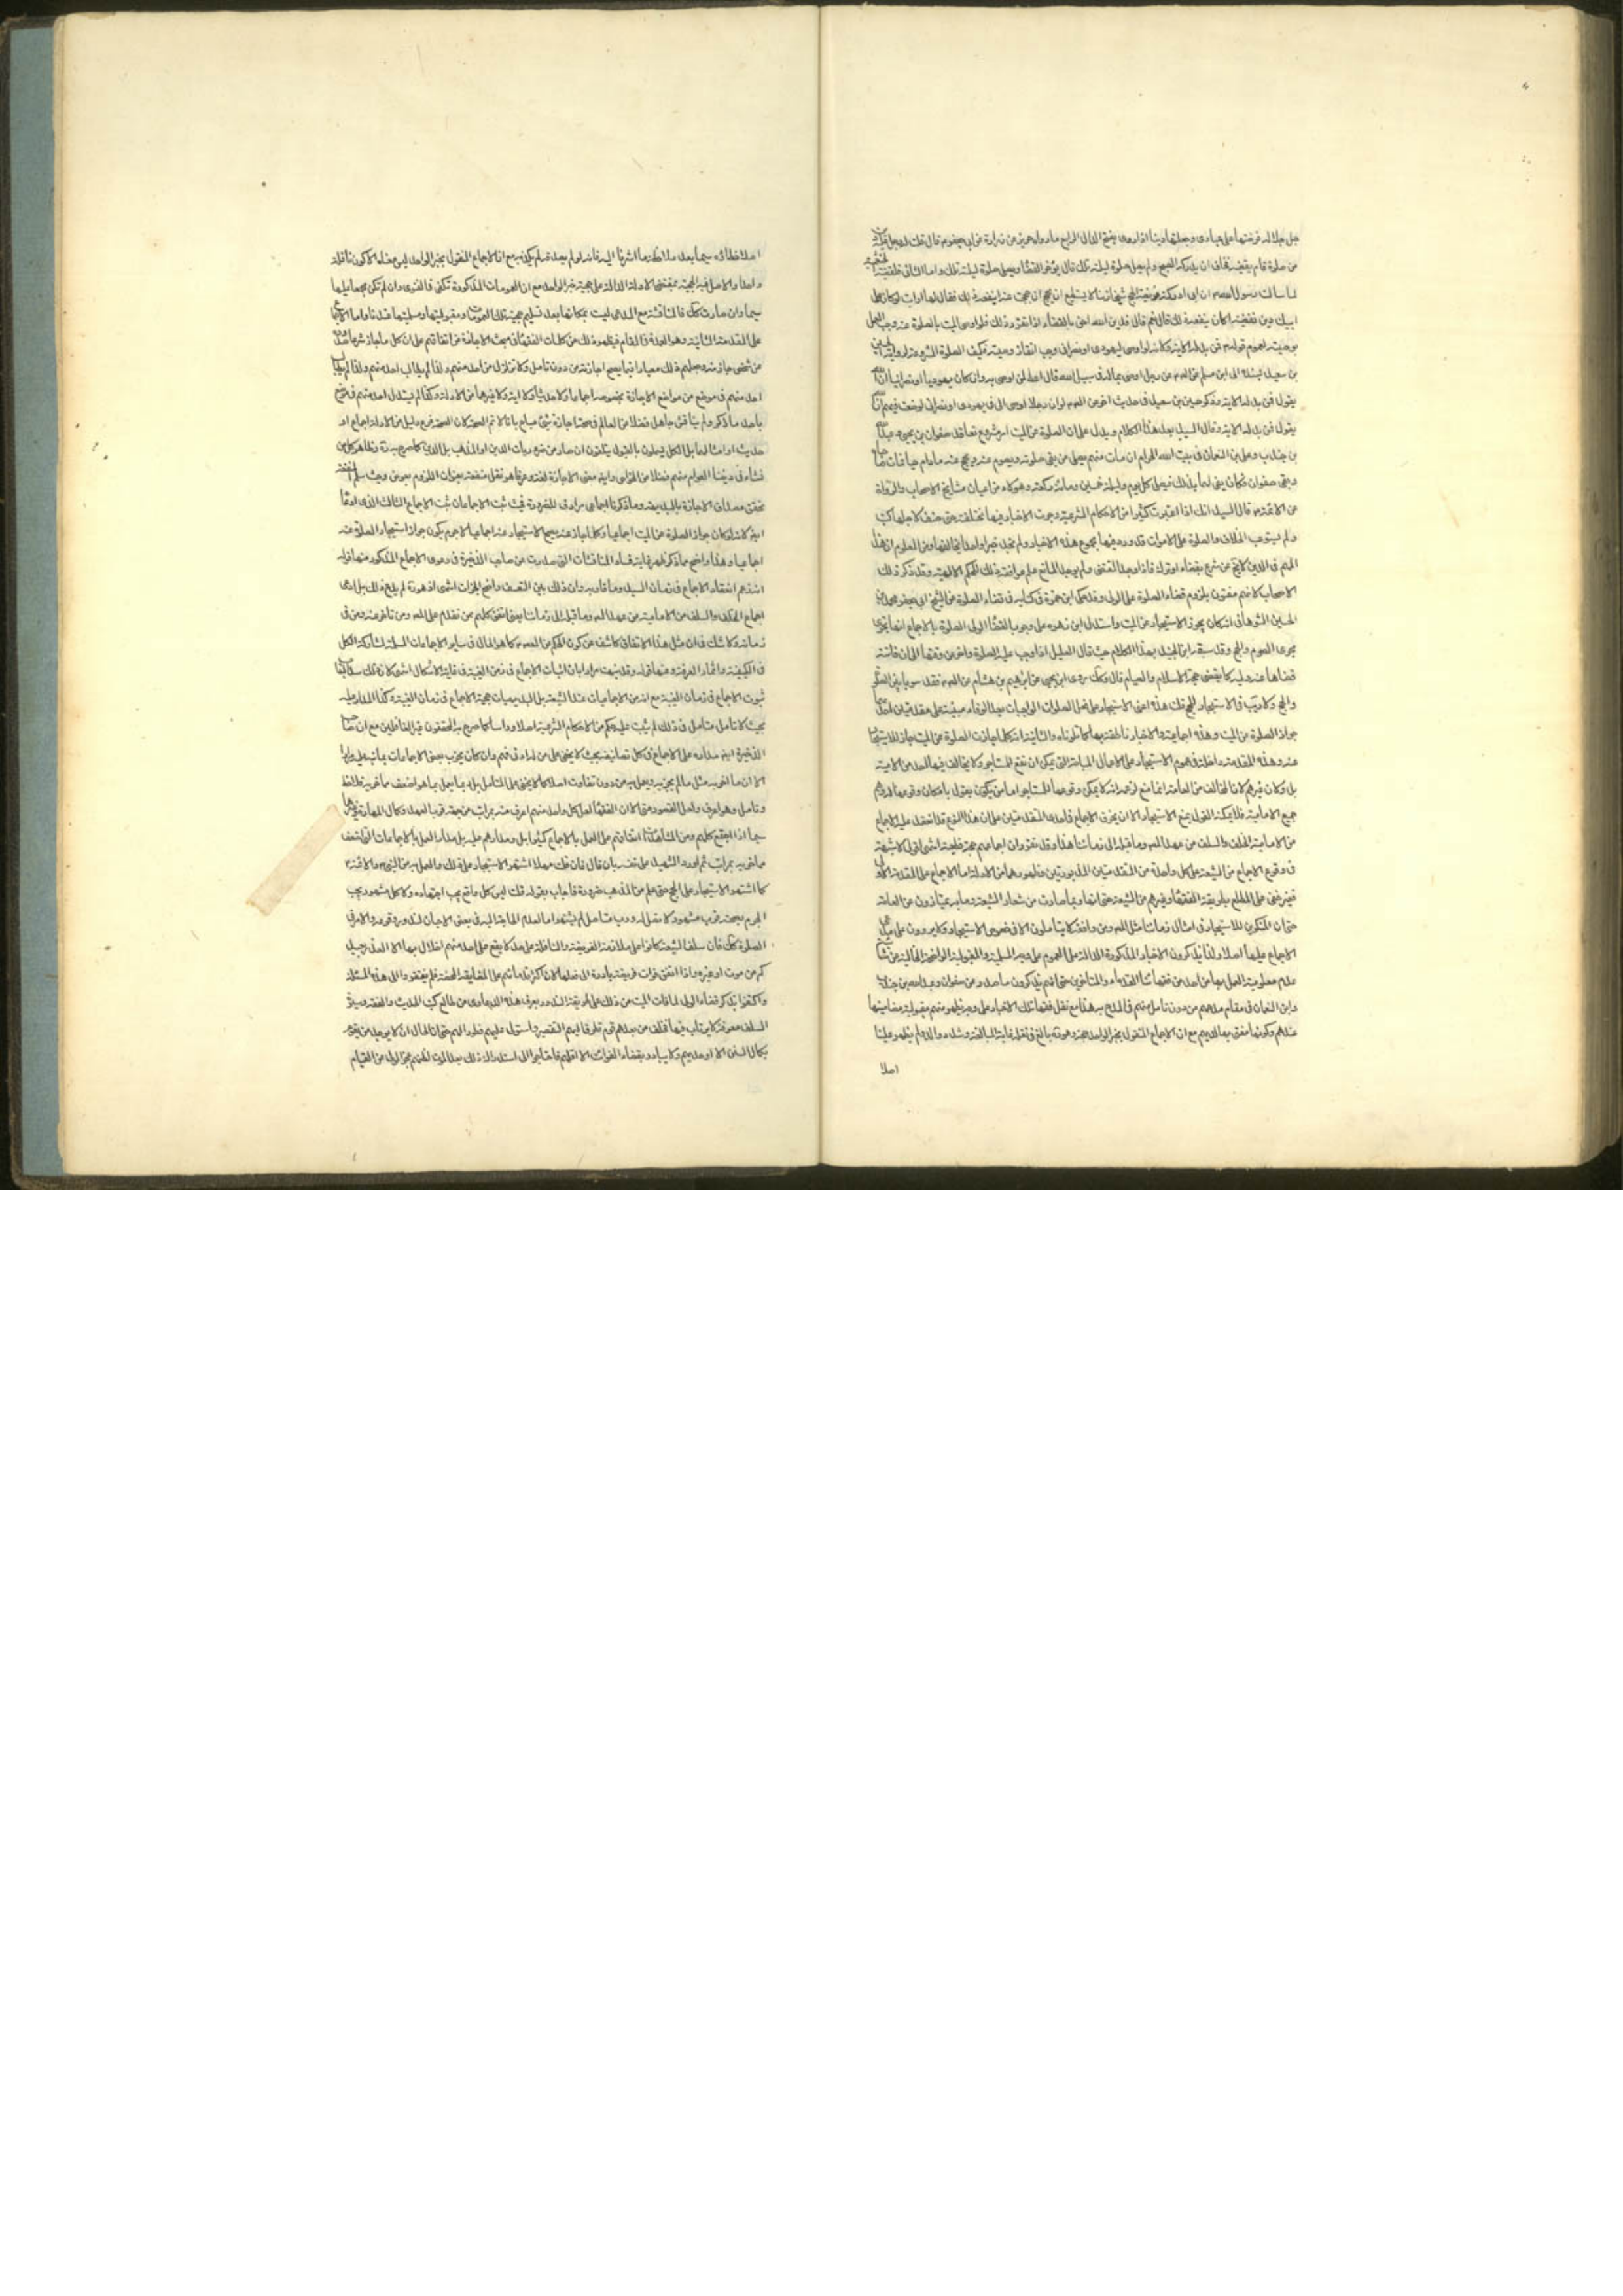 جل جلاله فرضتها على عبادى وجعلتها دينا
من صلوة قام بقضيه فخاف ان يدركه الصبح ولم يصل صلوة ليلته تلك قال يؤخر القضاء ويصلى صلوة ليلته تلك واما الثانى
لما سالت رسول الله ان ابى ادركته فريضة الحج شيخا زمنا لا يستطيع ان يحج ان حججت عنه اينفعه ذلك فقال لها ارايت لو كان على
ابيك دين فقضيته اكان ينفعه ذلك قالت نعم قال فدين الله احق بالقضاء اذا تقرر ذلك فلو اوصى الميت بالصلوة عنه وجب العمل
بوصيته لعموم قوله فمن بدله الاية ولانه لو اوصى ليهودى او نصرانى وجب انفاذ وصيته فكيف الصلوة المشروعة لرواية الحسين
بن سعيد بسنده الى ابن مسلم عن رجل اوصى بماله فى سبيل الله قال اعط لمن اوصى به وان كان يهوديا او نصرانيا ان الله
يقول فمن بدله الاية وذكر حسين بن سعيد فى حديث اخر عن لو ان رجلا اوصى الى فى يهودى او نصرانى لوضعت فيهم ان الله
يقول فمن بدله الاية وقال السيد بعد هذا الكلام ويدل على ان الصلوة عن الميت امر مشروع تعاقد صفوان بن يحيى وعبد الله
بن جندب وعلى بن النعمان فى بيت الله الحرام ان من مات منهم يصلى من بقى صلوته ويصوم عنه ويحج عنه مادام حيا فمات صاحباه
وبقى صفوان فكان يفى لهما بذلك فيصلى كل يوم وليلة خمسين ومائة ركعة وهولاء من اعيان مشايخ الاصحاب والرواة
عن الائمة قال السيد انك اذا اعتبرت كثيرا من الاحكام الشرعية وجدت الاخبار فيها مختلفة حتى صنف لاجلها كتب
ولم يستوعب الخلاف والصلوة على الاموات قد ورد فيها مجموع هذه الاخبار ولم نجد خبرا واحدا يخالفها ومن المعلوم ان هذا
المهم فى الدين لا يخلو عن شرع بقضاء او ترك فاذا وجد المقتضى ولم يوجد المانع علم موافقة ذلك للحكم الالهية وقد ذكر ذلك
الاصحاب لانهم مفتون بلزوم قضاء الصلوة على الولى وقد حكى ابن حمزة فى كتابه فى قضاء الصلوة عن الشيخ ابى جعفر محمد بن
الحسين الشوهانى انه كان يجوز الاستيجار عن الميت واستدل ابن زهره على وجوب القضاء الولى الصلوة بالاجماع انها تجرى
مجرى الصوم والحج وقد سبقه ابن الجنيد بهذا الكلام حيث قال العليل اذا وجب عليه الصلوة واخر عن وقتها الى ان فاتته
قضاها عنه وليه كما يقضى حجة الاسلام والصيام قال وكذلك روى ابن يحيى عن ابرهيم بن هشام عن فقد سويا بين الصلوة
والحج ولا ريب فى الاستيجار للحج قلت هذه اعنى الاستيجار على فعل الصلوات الواجبات بعد الوفاء مبنية على مقدمتين احدهما
جواز الصلوة عن الميت وهذه اجماعية والاخبار ناطقة بها كما تلوناه والثانية انه كلما جازت الصلوة عن الميت جاز للاستيجار
عنه وهذه المقدمة داخلة فى عموم الاستيجار على الاعمال المباحة التى يمكن ان تقع للمستاجر ولا يخالف فيها احد من الامامية
بل ولا من غيرهم لان المخالف من العامة انما منع لزعمه انه لا يمكن وقوعها للمستاجر اما من يكون يقول بامكان وقوعها له وهم
جميع الامامية فلا يمكنه القول بمنع الاستيجار الا ان يخرق الاجماع فى احدى المقدمتين على ان هذا النوع قد انعقد عليه الاجماع
من الامامية الخلف والسلف من عهد وما قبله الى زماننا هذا وقد تقرر ان اجماعهم حجة قطعية انتهى اقول لا شبهة
فى وقوع الاجماع من الشيعة على كل واحدة من المقدمتين المذبورتين وظهورهما من الادلة اما الاجماع على المقدمة الاولى
فغير خفى على المطلع بطريقة الفقهاء وغيرهم من الشيعة حتى انها وبها صارت من شعار الشيعة وما به يمتازون من العامة
حتى ان المنكرين للاستيجار فى امثال زماننا مثل ومن وافقه لا يتاملون الا فى خصوص الاستيجار ولا يوردون على
الاجماع عليها اصلا ولذا يذكرون الاخبار المذكورة الدالة على العموم على وجه المسلمية والمقبولية الواضحة الخالية عن
عدم معلومية العمل بها من احد من فقهائنا القدماء والمتاخرين حتى انهم يذكرون ما صدر من صفوان وعبد الله بن جندب
وابن النعمان فى مقام مدحهم من دون تامل منهم فى المدح به هذا مع نقل فقهائنا تلك الاخبار على وجه يظهر منهم مقبولية مضامينها
عندهم وكونها مفتى بها لديهم مع ان الاجماع المنقول بخبر الواحد حجة وهو قد بالغ فى نقله غاية المبالغة وشدد والد ولم يظهر علينا
اصلا
اصلا خطائه سيما بعد ملاحظة ما اشرنا اليه فانه لو لم يعد قد لم يكن نزاع ان الاجماع المنقول بخبر الواحد ليس معناه الا كون ناقله
واحدا والاصل فيه الحجية بمقتضى الادلة الدالة على حجية خبر الواحد مع ان العمومات المذكورة تكفى فى الفتوى وان لم تكن بعمد ايلها
سيما وان صارت كذلك فالمناقشة مع المدعى ليست بمكانها بعد تسليم حجية تلك العمومات ومقبوليتها ومسلميتها عندنا واما الاجماع
على المقدمة الثانية وهو العمدة فى المقام فيظهر ذلك من كلمات الفقهاء فى مبحث الاجازة من اتفاقهم على ان كل ما جاز شرعا
من شخص جاز وجعلهم ذلك معيارا فيما يصح اجازته من دون تامل ولا تزلزل من احد منهم ولذا لم يطالب احد منهم
احد منهم فى موضع من مواضع الاجازة بخصوصه اجماعا ولا حديثا ولا اية ولا غيرهما من الادلة وكذا لم يستدل احد منهم فى موضع
باحد ما ذكر ولم يناقش جاهل فضلا من العالم فى صحة اجازة شئ مباح بانه لا تتم الصحة لان الصحة فرع دليل من الادلة اجماع او
حديث او امثالها بل الكل يتلقون بالقبول يتلقون ان صار من ضروريات الدين او المذهب بل الدين كما صرح به
نشاء فى ديننا العوام منهم فضلا من الخواص وايضا معنى الاجازة لغة وعرفا هو نقل منفعة بعنوان اللزوم بعوض وحيث
تحقق مصداق الاجازة بالبديهة وما ذكرنا اجماعى مرادف للضرورة فحيث ثبت الاجماعان ثبت الاجماع الثالث الذى ادعاه
ايضا لانه لو كان جواز الصلوة عن الميت اجماعيا وكلما جاز عنه يصح الاستيجار عنه اجماعيا لا جرم يكون جواز استيجار الصلوة عنه
اجماعيا وهذا واضح مما ذكر ظهر نهاية فساد المناقشات التى صدرت عن صاحب الذخيرة فى دعوى الاجماع المذكور منها قوله
انه زعم انعقاد الاجماع فى زمان السيد وما قاربه وان ذلك بين التعسف واضح الجزاف انتهى اذ هو ره لم يدع ذلك بل ادعى
اجماع الخلف والسلف من الامامية من عهد وما قبله الى زماننا يعنى اتفق كلهم ممن تقدم على ومن تاخر عنه ومن فى
زمانه ولا شك فى ان مثل هذا الاتفاق كاشف عن كون الحكم من المعصوم كما هو الحال فى ساير الاجماعات المسلمة لمشاركة الكل
فى الكيفية واتحاد المعرفة ومنها قوله وقد نبهت مرارا بان اثبات الاجماع فى زمن الغيبة فى غاية الاشكال انتهى
ثبوت الاجماع فى زمان الغيبة مع انه من الاجماعيات عند الشيعة بل البديهيات حجية الاجماع فى زمان الغيبة وكذا المدار عليه
بحيث لا تامل متامل فى ذلك لم يثبت عليه حكم من الاحكام الشرعية اصلا وراسا كما صرح به المحققون غير الغافلين مع ان صاحب
الذخيرة ايضا مداره على الاجماع فى كل تصانيفه بحيث لا يخفى على من له ادنى فهم وان كان يخرب بعض الاجماعات
الا ان ما لخربه مثل ما لم يخربه ويعمل به من دون تفاوت اصلا كما لا يخفى على المتامل بل ربما يعمل بما هو اضعف مما خربه فلاحظ
وتامل وهو اعرف واصل القصور منى الا ان الفقهاء لعل كل واحد منهم اعرف منه بمراتب من جهة قرب العهد وكمال المهارة وغيرهما
سيما اذا اجتمع كلهم ومن المشاهد اتفاقهم على العمل بالاجماع كثيرا بل ومدارهم عليه بل مدار العمل بالاجماعات التى اضعف
مما خربه بمراتب ثم اورد الشهيد على نفسه بان قال فان قلت فهلا اشتهر الاستيجار على ذلك والعمل به عن النبى والائمة
كما اشتهر الاستيجار على الحج حتى علم من المذهب ضرورة فاجاب بقوله قلت ليس كل واقع يجب اشتهاره ولا كل مشهور يجب
الجزم بصحته فرب مشهور لا اصل له ورب متاصل لم يشتهر اما لعدم الحاجة اليه فى بعض الاحيان لندور وقوعه والامر فى
الصلوة كذلك فان سلف الشيعة كانوا على ملازمة الفريضة والنافلة على حد لا يقع على احد منهم اخلال بها الا لعذر بعيد
كمرض موت او غيره واذا اتفق فوات فريضة بادروا الى فعلها لان اكثر قدمائهم على المضايقة المحضة فلم يفتقروا الى هذه المسئلة
واكتفوا بذكر قضاء الولى لما فات الميت من ذلك على طريقة الندور ويعرف هذه الدعاوى من طالع كتب الحديث والفقه وسيرة
السلف معرفة لا يرتاب فيها فخلف من بعدهم قوم تطرق اليهم التقصير واستولى عليهم فطور الهمم حتى ال الحال الى انه لا يوجد من يقوم
بكمال السنن الا اوحديهم ولا يبادر بقضاء الفوائت الا اقلهم فاحتاجوا الى استدراك ذلك بعد الموت لظنهم عجز الولى عن القيام